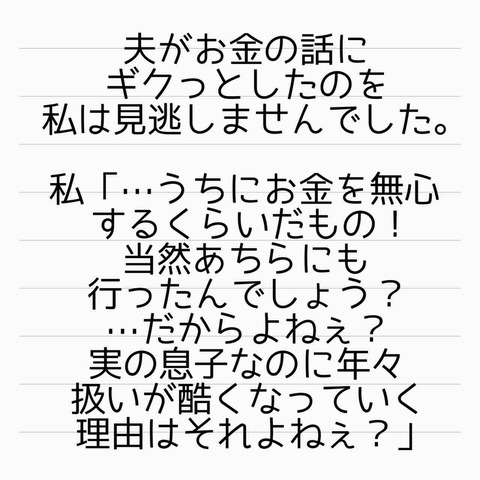 夫がお金の話に
ギクっとしたのを
私は見逃しませんでした。
私「…うちにお金を無心
するくらいだもの！
当然あちらにも
行ったんでしょう？
…だからよねぇ？
実の息子なのに年々
扱いが酷くなっていく
理由はそれよねぇ？」